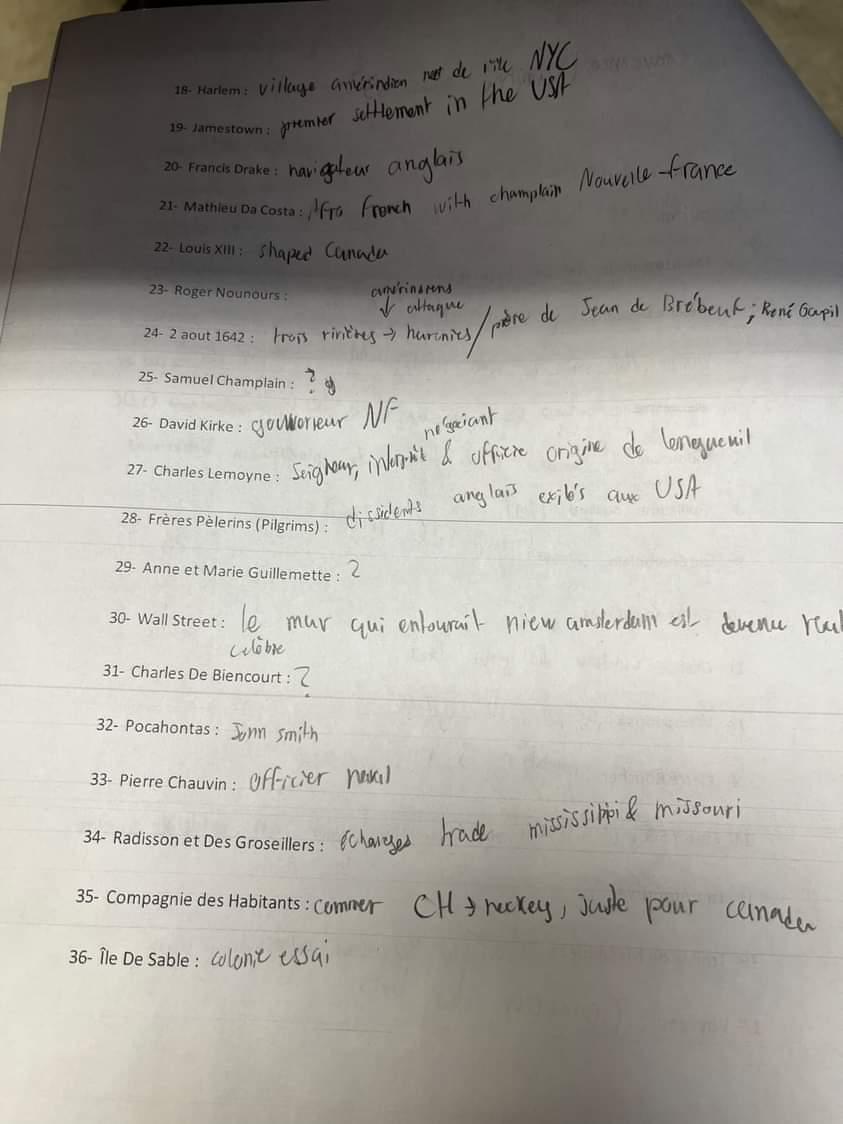 18- Harlem : village amérindien de NYC
19- Jamestown : premier settlement in the USA
20- Francis Drake : navigateur anglais
21- Mathieu Da Costa : Afro French with champlain Nouvelle-france
22- Louis XIII : shaped Canada
23- Roger Nounours :
↓ attaque
24- 2 aout 1642 : trois rivières → / père de Jean de Brébeuf ; René Goupil
25- Samuel Champlain : ?
26- David Kirke : NF
négociant
27- Charles Lemoyne : & origine de
28- Frères Pèlerins (Pilgrims) : dissidents anglais aux USA
29- Anne et Marie Guillemette : ?
30- Wall Street : le mur qui entourait niew amsterdam est devenu
célèbre
31- Charles De Biencourt : ?
32- Pocahontas : smith
33- Pierre Chauvin : officier
34- Radisson et Des Groseillers : trade mississippi & missouri
35- Compagnie des Habitants : CH → hockey, juste pour canada
36- Île De Sable : colonie essai